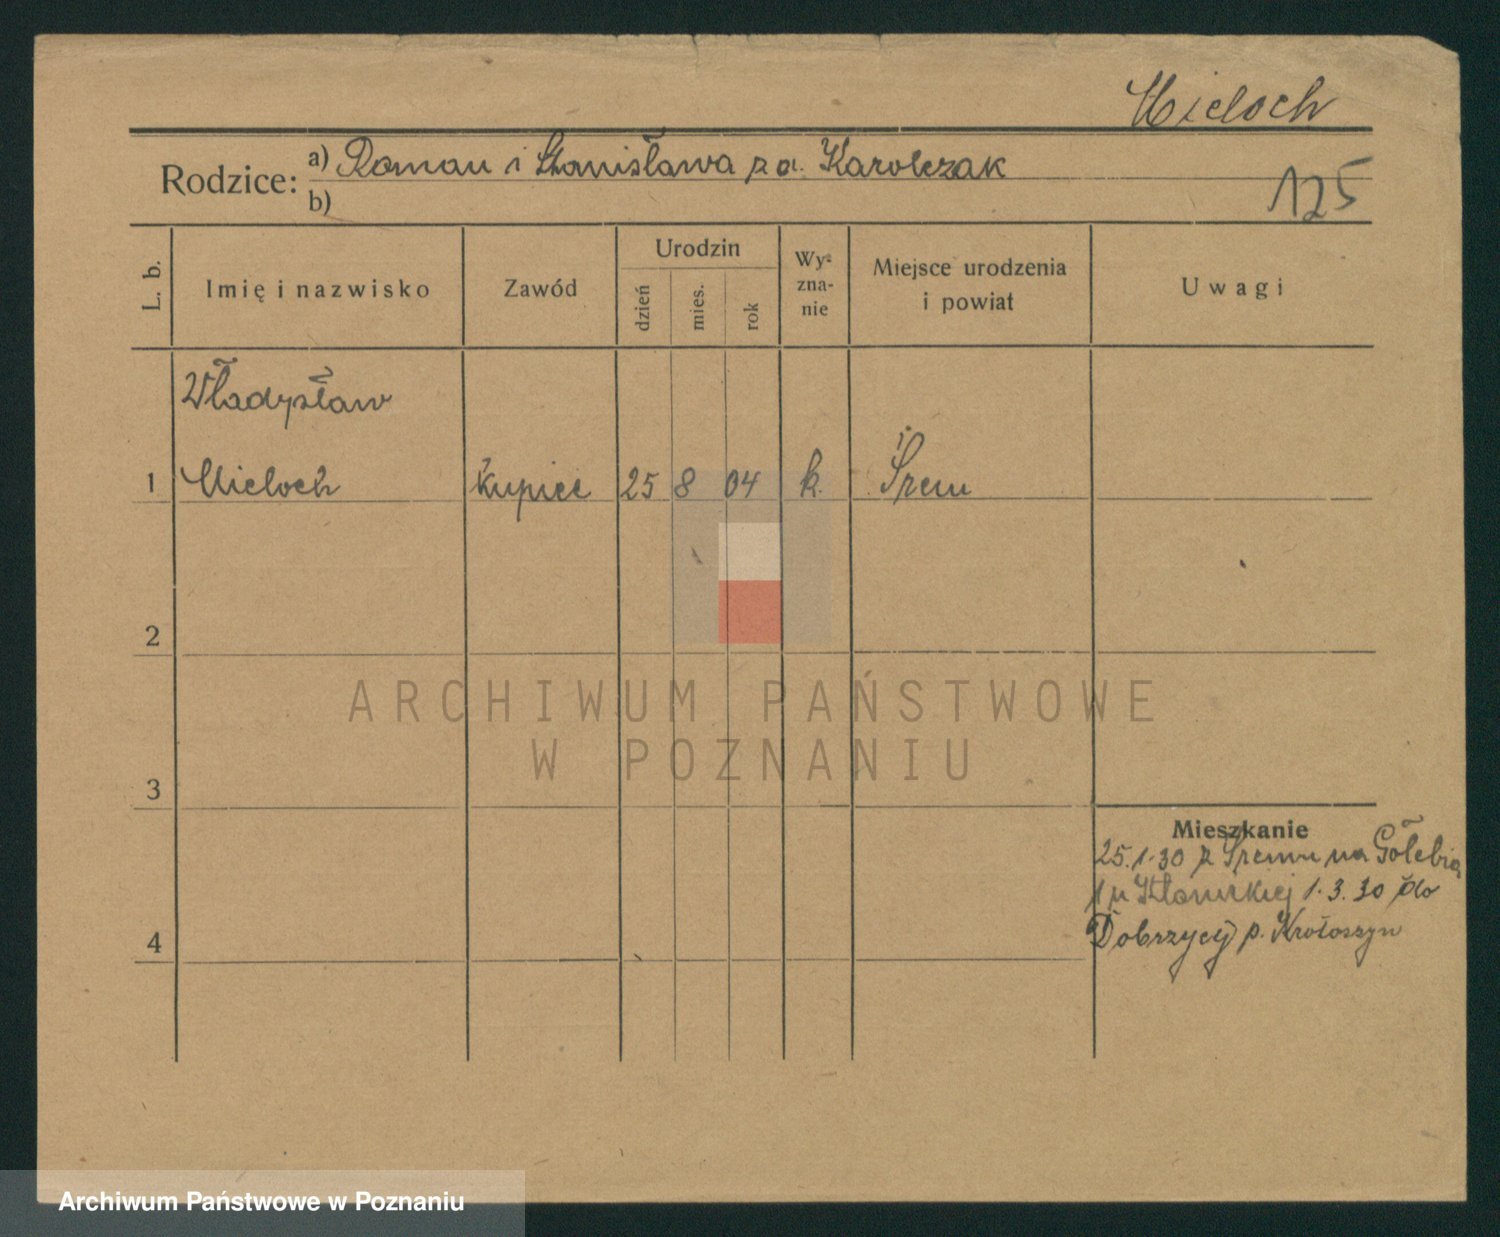 Mieloch
Rodzice: a) Roman i Stanisława z d. Karolczak
b)
125
L. b.
Imię i nazwisko
Zawód
Urodzin
dzień
mies.
rok
Wy-
zna-
nie
Miejsce urodzenia
i powiat
Uwagi
Władysław
1 Mieloch kupiec 25 8 04 k. Śrem
2
3
4
Mieszkanie
25.1.30 z Śremu na Gołębią
1 u 1.3.30 do
Dobrzycy p. Krotoszyn
ARCHIWUM PAŃSTWOWE
W POZNANIU
Archiwum Państwowe w Poznaniu